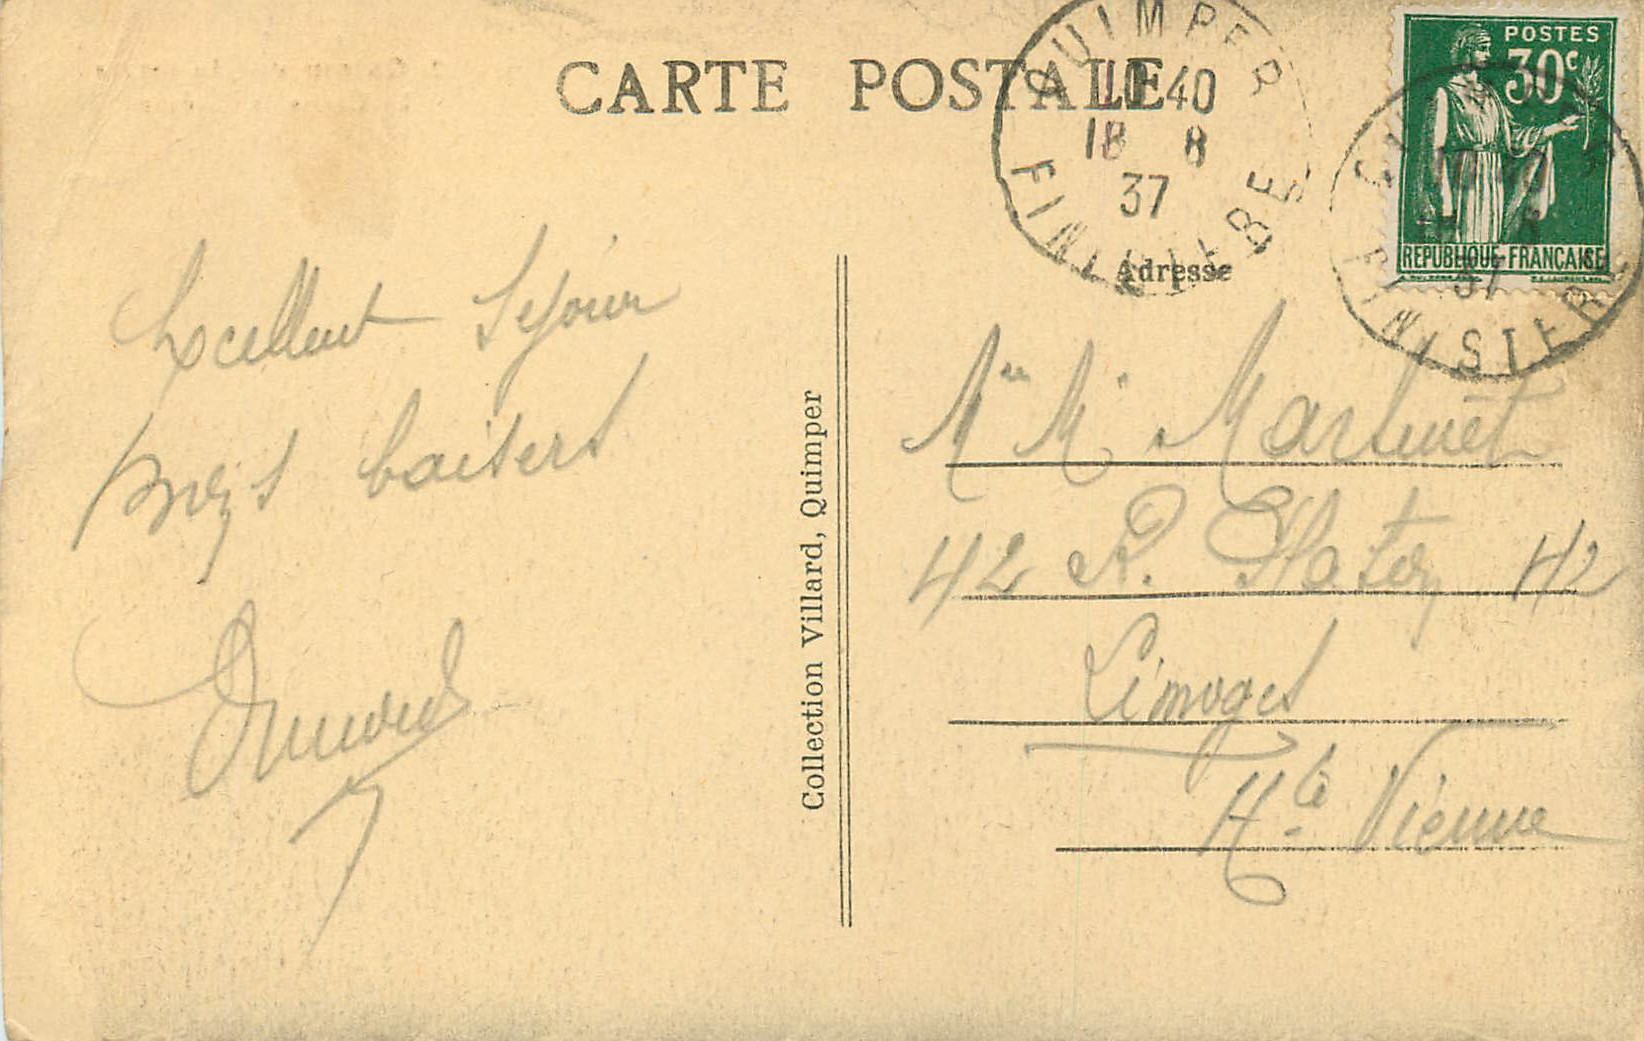 CARTE POSTALE
QUIMPER
10 40
18 8
37
FINISTERE
POSTES
30c
REPUBLIQUE FRANÇAISE
37
FINISTERE
Adresse
Excellent Séjour
baisers
Collection Villard, Quimper
Martinet
42 R. 42
Limoges
Hte Vienne